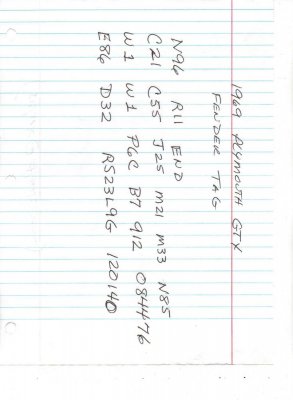 1969 PLYMOUTH GTX
FENDER TAG
N96 R11 END
C21 C55 J25 M21 M33 N85
W1 W1 P6C B7 912 084476
E86 D32 RS23L9G 120140